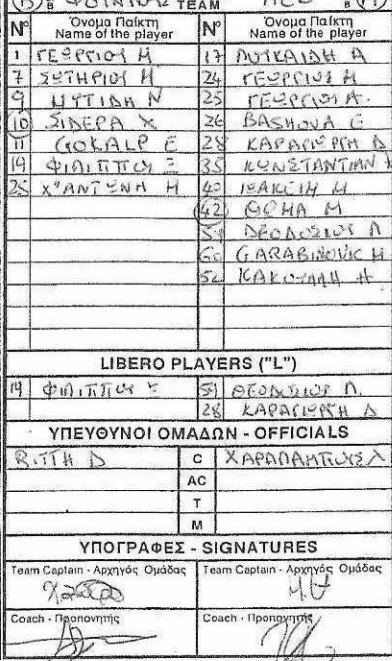 TEAM
Nº Όνομα Παίκτη Name of the player Nº Όνομα Παίκτη Name of the player
1 ΓΕΩΡΓΙΟΥ Μ 17 ΛΟΥΚΑΙΔΗ Α
7 ΣΩΤΗΡΙΟΥ Μ 24 ΓΕΩΡΓΙΟΥ Μ
9 ΜΥΤΙΔΗ Ν 25 ΓΕΩΡΓΙΟΥ Α.
10 ΣΙΔΕΡΑ Χ 26 BASHOVA E
11 GOKALP E 28 ΚΑΡΑΓΙΩΡΓΗ Δ
14 ΦΙΛΙΠΠΟΥ Ξ 35 ΚΩΝΣΤΑΝΤΙΝΟΥ
25 Χ"ΑΝΤΩΝΗ Μ 40 ΙΩΑΚΕΙΜ Μ
42 ΘΩΜΑ Μ
51 ΘΕΟΔΟΣΙΟΥ Π
60 GARABINOVIC M
52 ΚΑΚΟΥΛΛΗ Η
LIBERO PLAYERS ("L")
14 ΦΙΛΙΠΠΟΥ Ξ 51 ΘΕΟΔΟΣΙΟΥ Π.
28 ΚΑΡΑΓΙΩΡΓΗ Δ
ΥΠΕΥΘΥΝΟΙ ΟΜΑΔΩΝ - OFFICIALS
ΡΙΤΤΗ Δ C ΧΑΡΑΛΑΜΠΟΥΣ Λ
AC
T
M
ΥΠΟΓΡΑΦΕΣ - SIGNATURES
Team Captain - Αρχηγός Ομάδας Team Captain - Αρχηγός Ομάδας
Coach - Προπονητής Coach - Προπονητής